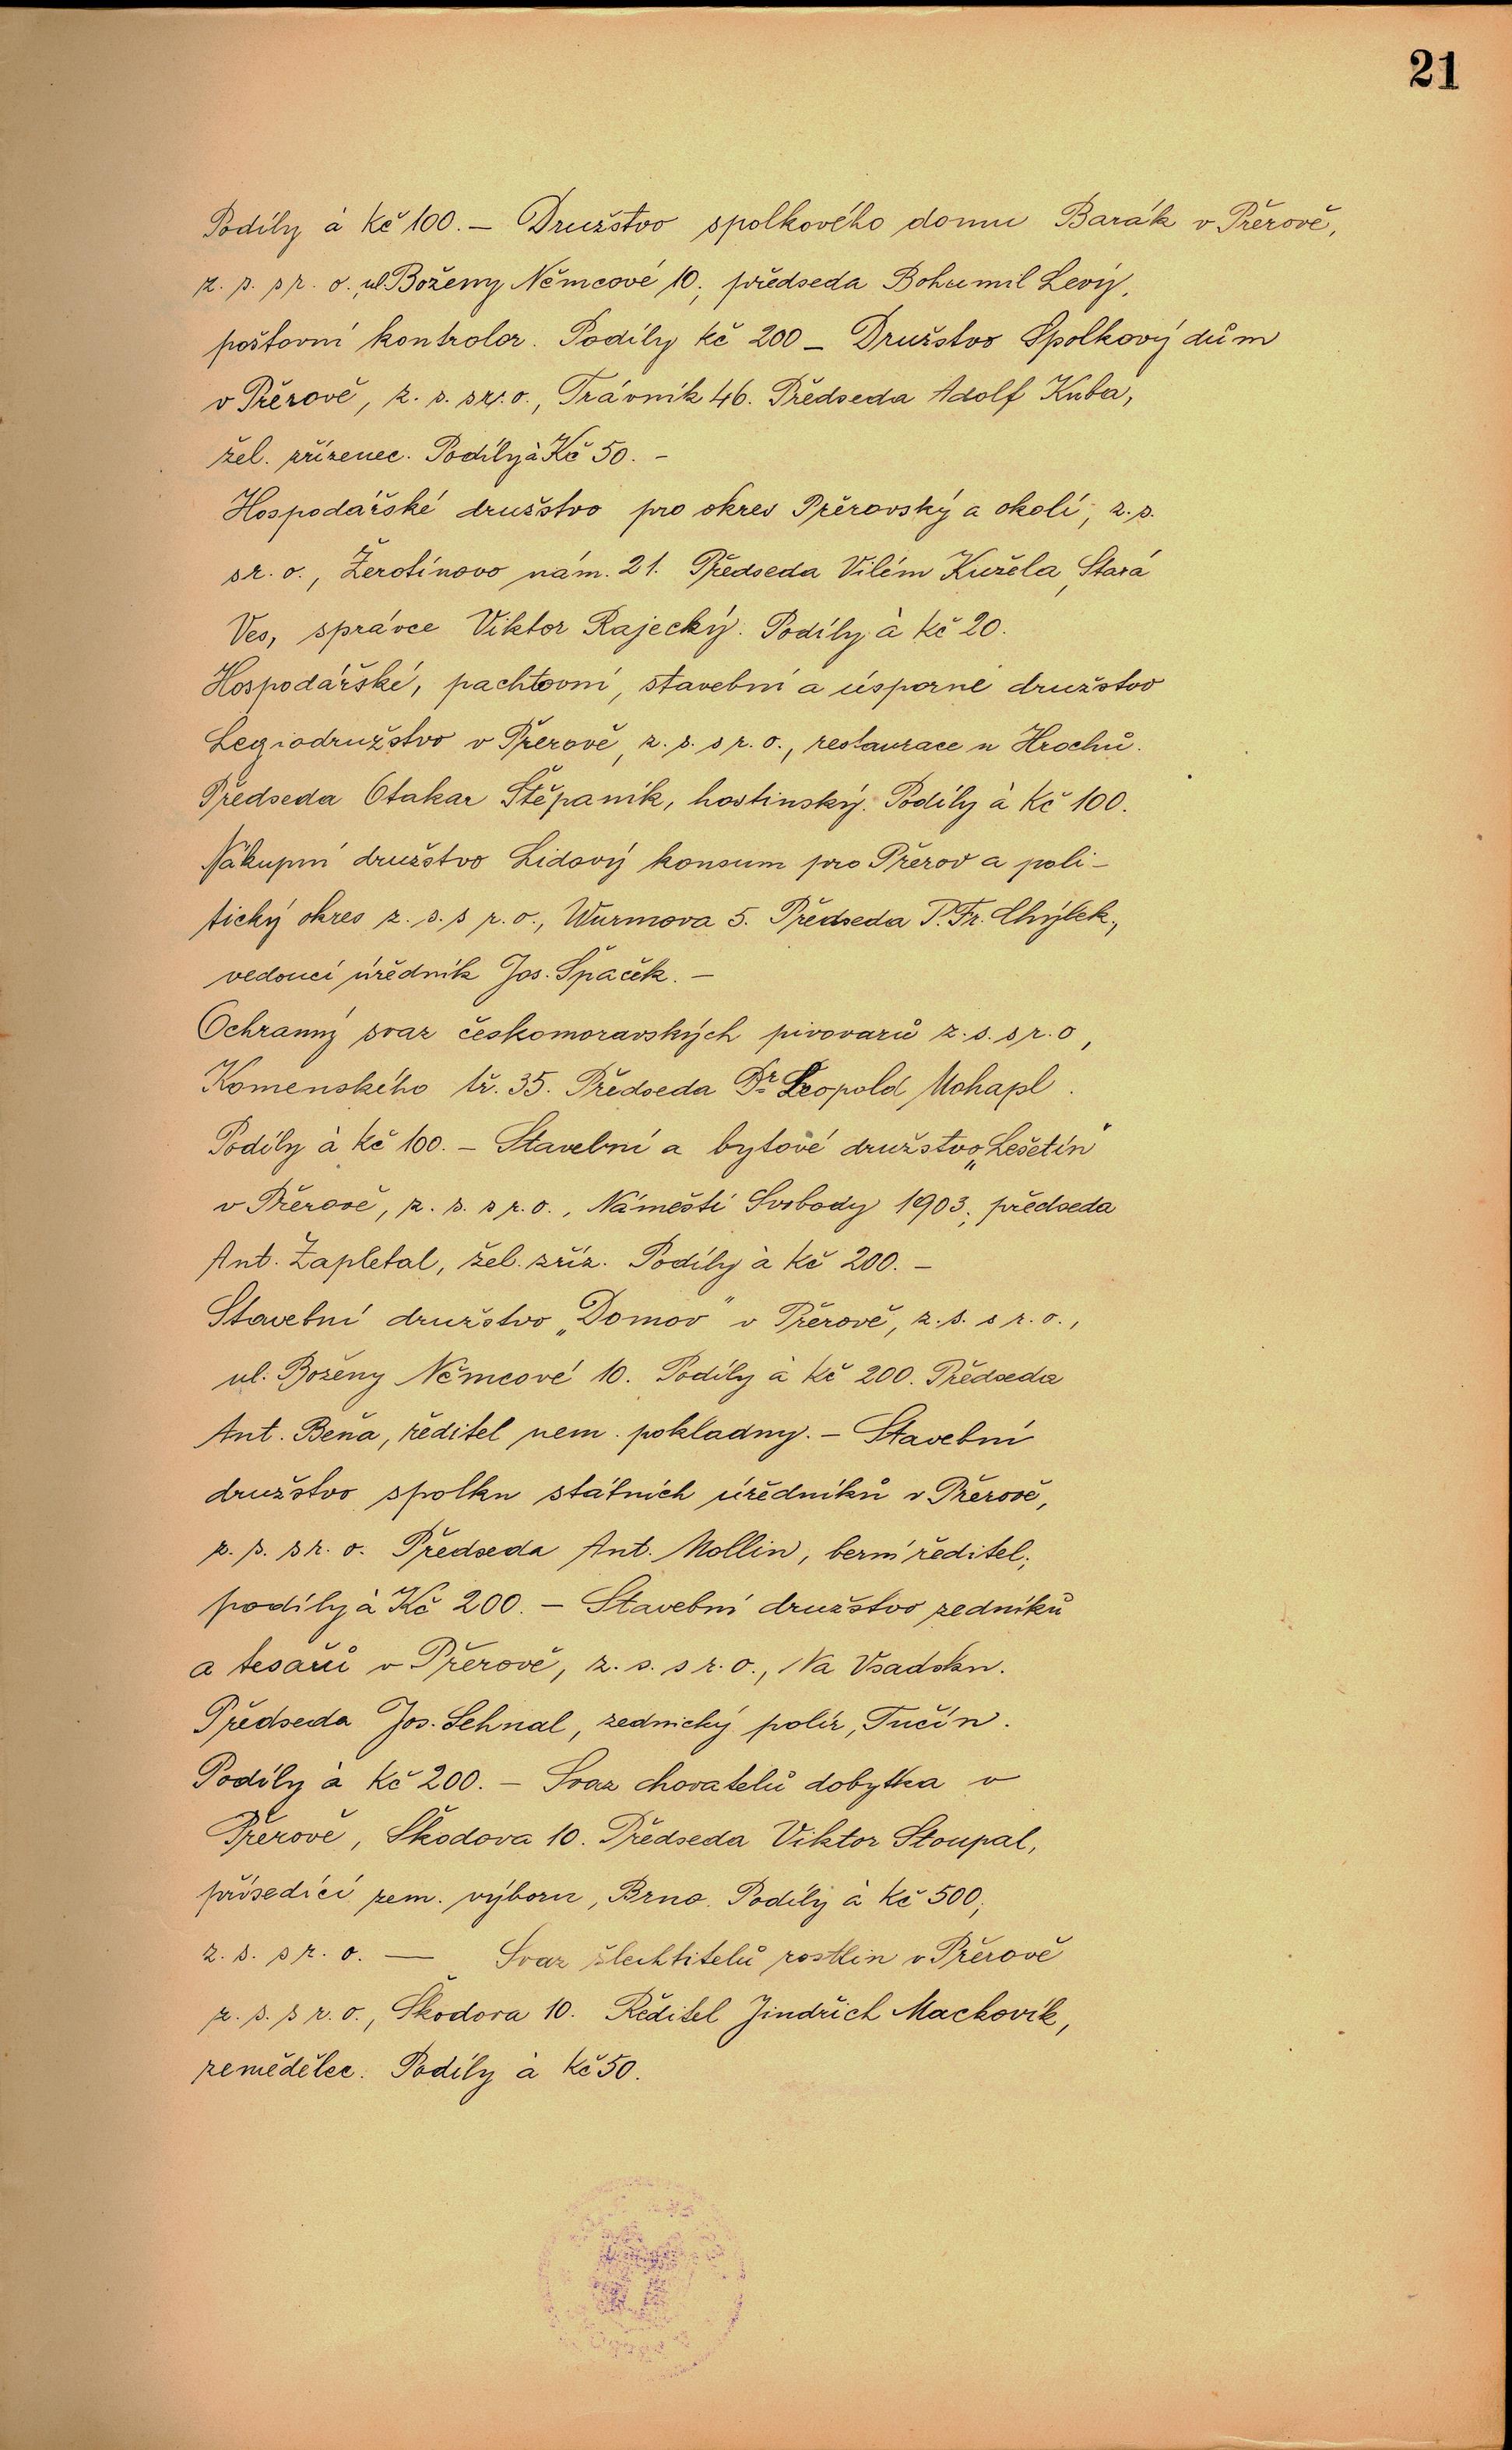 21
Podíly à Kč 100.— Družstvo spolkového domu Barák v Přerově,
z. s. s r. o., ul. Boženy Němcové 10; předseda Bohumil Levý,
poštovní kontrolor. Podíly Kč 200 — Družstvo Spolkový dům
v Přerově, z. s. s r. o., Trávník 46. Předseda Adolf Kuba,
žel. zřízenec. Podíly à Kč 50. —
Hospodářské družstvo pro okres Přerovský a okolí, z. s.
s r. o., Žerotínovo nám. 21. Předseda Vilém Kužela, Stará
Ves, správce Viktor Rajecký. Podíly à Kč 20.
Hospodářské, pachtovní, stavební a úsporné družstvo
Legiodružstvo v Přerově, z. s. s r. o., restaurace u Hrochů.
Předseda Otakar Štěpaník, hostinský. Podíly à Kč 100.
Nákupní družstvo Lidový konsum pro Přerov a poli-
tický okres z. s. s r. o., Wurmova 5. Předseda P. Fr. Chýlek,
vedoucí úředník Jos. Špaček. —
Ochranný svaz českomoravských pivovarů z. s. s r. o,
Komenského tř. 35. Předseda Dr Leopold Mohapl.
Podíly à Kč 100. — Stavební a bytové družstvo „Lešetín"
v Přerově, z. s. s r. o., Náměstí Svobody 1903; předseda
Ant. Zapletal, žel. zříz. Podíly à Kč 200. —
Stavební družstvo „Domov" v Přerově, z. s. s r. o.,
ul. Boženy Němcové 10. Podíly à Kč 200. Předseda
Ant. Beňa, ředitel nem. pokladny. — Stavební
družstvo spolku státních úředníků v Přerově,
z. s. s r. o. Předseda Ant. Mollin, berní ředitel;
podíly à Kč 200. — Stavební družstvo zedníků
a tesařů v Přerově, z. s. s r. o., Na Vsadsku.
Předseda Jos. Sehnal, zednický polír, Tučín.
Podíly à Kč 200. — Svaz chovatelů dobytka v
Přerově, Škodova 10. Předseda Viktor Stoupal,
přísedící zem. výboru, Brno. Podíly à Kč 500;
z. s. s r. o. — Svaz šlechtitelů rostlin v Přerově
z. s. s r. o., Škodova 10. Ředitel Jindřich Mackovík,
zemědělec. Podíly à Kč 50.